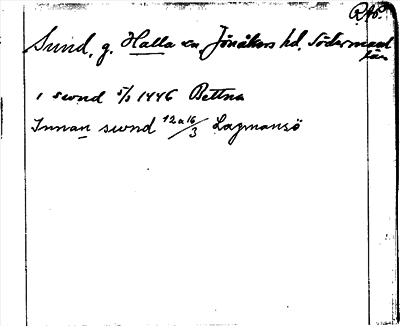 RAp.
Sund, g. Halla sn Jönåkers hd, Södermanl
län
i swnd 5/3 1446 Bettna
Innan swnd 12 a 16/3 Lagmansö